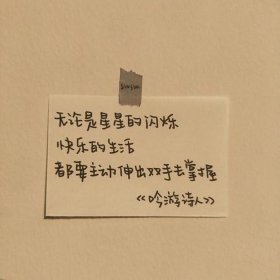 无论是星星的闪烁
快乐的生活
都要主动伸出双手去掌握
《吟游诗人》